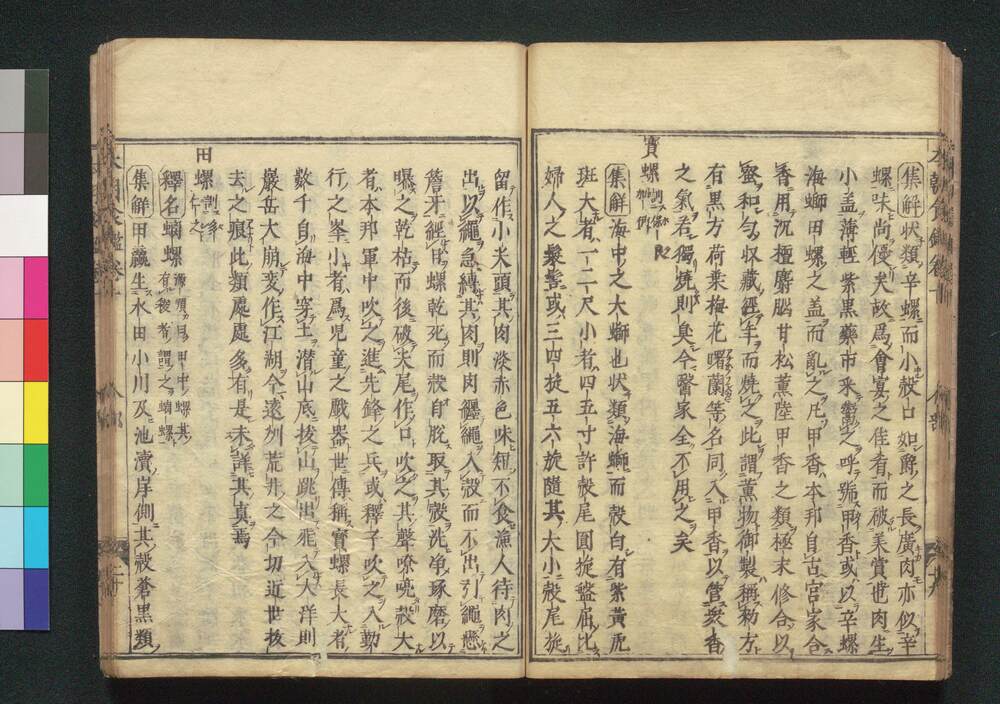 集解状類辛螺而小殻口如爵之長廣肉亦似辛
螺味尚優矣故為會宴之佳肴而被美賞世肉生
小盖薄輕紫黒藥市采鬻之呼号甲香或以辛螺
海螄田螺之盖而亂之凡甲香本邦自古官家合
香用沉檀麝腦甘松薫陸甲香之類極末修合以
蜜和匀収藏經年而燒之此謂薫物御製稱勑方
有黒方荷葉梅花曙蘭等名同入甲香以管衆香
之氣若獨燒則臭今醫家全不用之矣
寳螺
集解海中之大螄也状類海螄而殻白有紫黄虎
斑大者一二尺小者四五寸許殻尾圓旋盤屈比
婦人之髮髻或三四旋五六旋隨其大小殻尾旋
留作小尖頭其肉淡赤色味短不食漁人待肉之
出以繩急縳其肉則肉纒繩入殻而不出引繩懸
簷牙經日螺乾死而殻自脱取其殻洗净琢磨以
曝之乾枯而後破尖尾作口吹之其聲嘹喨殻大
者本邦軍中吹之進先鋒之兵或釋子吹之入動
行之峯小者為兒童之戲器世傳稱寳螺長大者
數千自海中穿土潜山底拔山跳出飛入大洋則
嚴岳大崩變作江湖今遠州荒井之今切近世拔
去之痕此類處處多有是未詳其真焉
田螺訓多仁之
釋名螭螺
集解田蠃生水田小川及池瀆岸側其殻蒼黒類